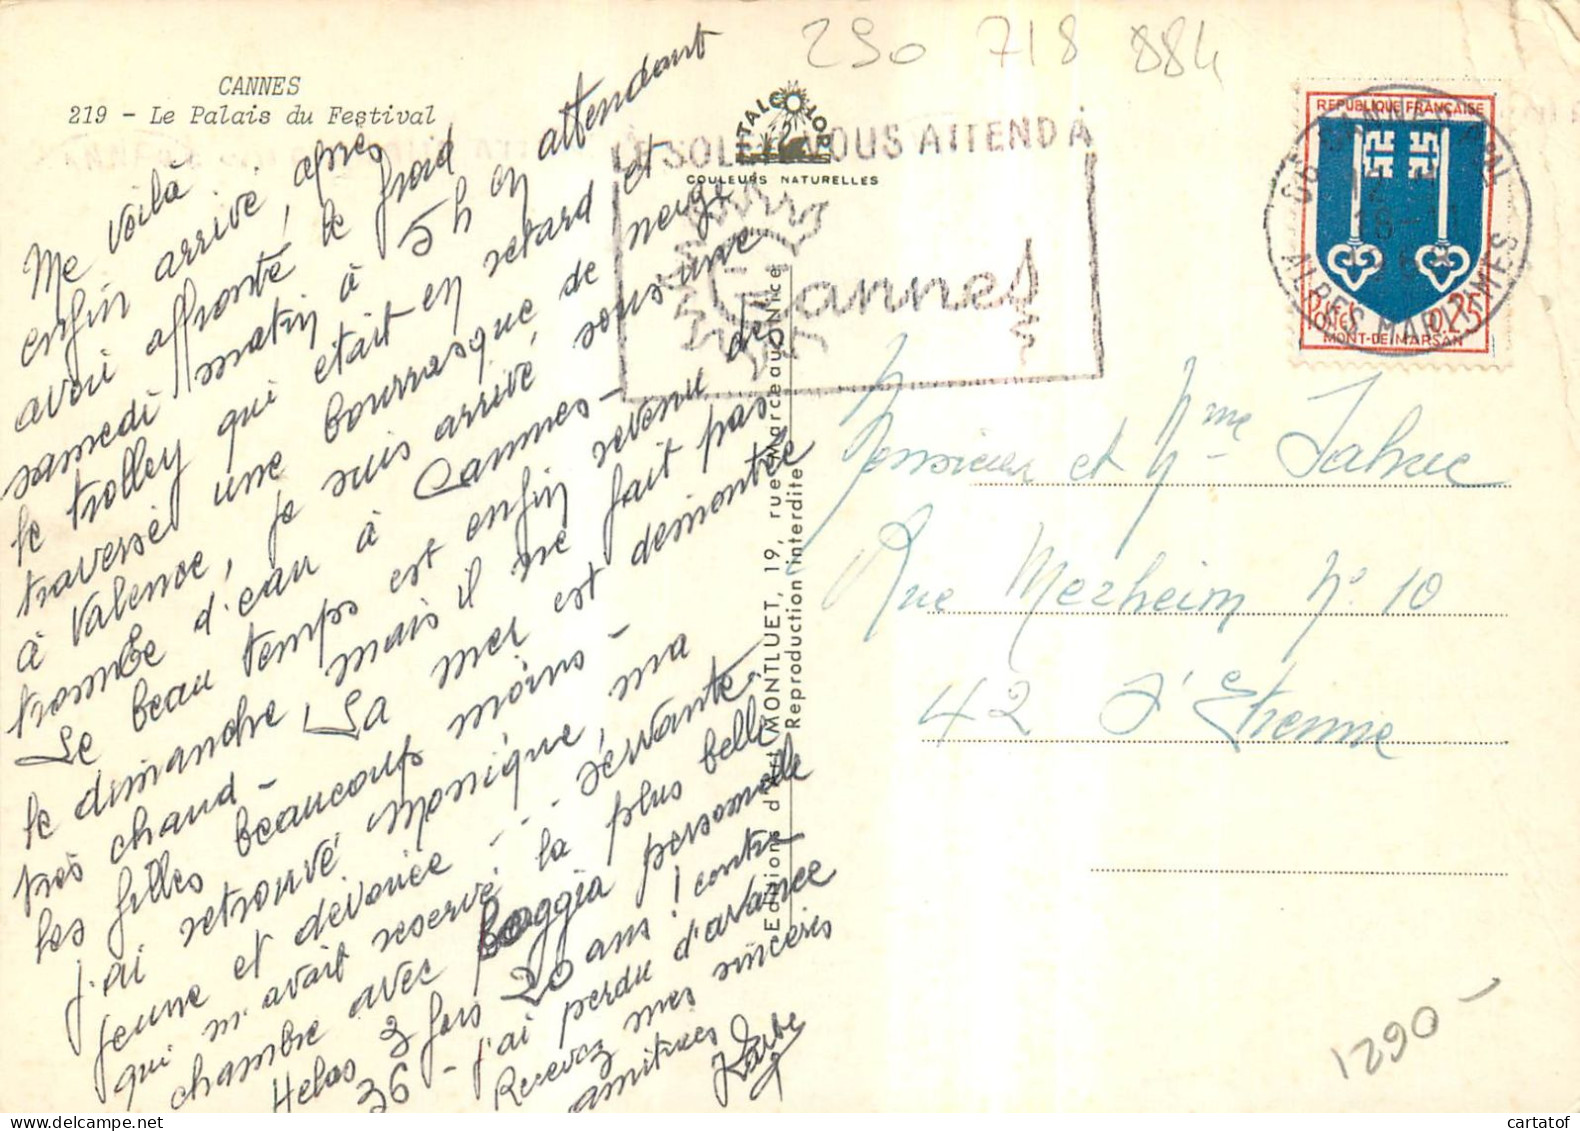 CANNES
219 - Le Palais du Festival
Me voilà
enfin arrivé, après
avoir affronté le froid
samedi matin à 5h en attendant
le trolley qui était en retard et
traversé une bourrasque de neige
à Valence, je suis arrivé, sous une
trombe d'eau à Cannes -
Le beau temps est enfin revenu de
le dimanche, mais il ne fait pas
très chaud - La mer est démontée
les filles beaucoup moins -
j'ai retrouvé Monique, ma
jeune et dévouée - - servante
qui m'avait reservé la plus belle
chambre avec loggia personnelle
Helas 3 fois 20 ans ! contre
36 - j'ai perdu d'avance
Recevez mes sincères
amitiés
290 718 884
ITALCOLOR
COULEURS NATURELLES
LE SOLEIL VOUS ATTEND A
Cannes
REPUBLIQUE FRANÇAISE
0,25
MONT-DE-MARSAN
CANNES
ALPES MARITIMES
Editions d'art MONTLUET, 19, rue Marceau Nice
Reproduction interdite
Monsieur et Mme
Rue Merheim No 10
42 St Etienne
1290 -
cartatof